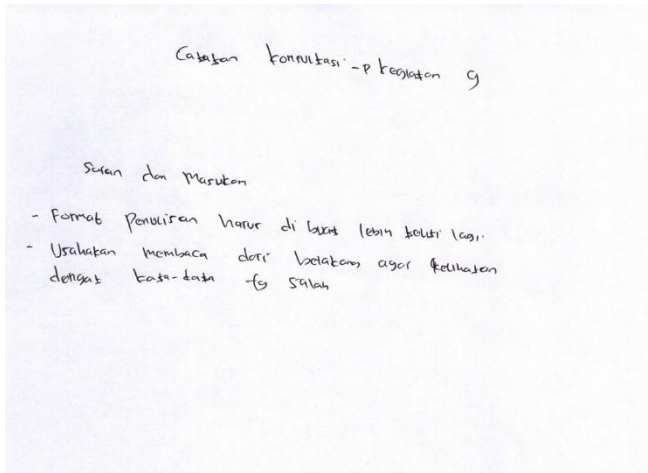 Catatan konsultasi -> kegiatan 9
Saran dan Masukan
- Format Penulisan harus di buat lebih teliti lagi.
- Usahakan membaca dari belakang agar kelihatan
dengat kata-data tg salah